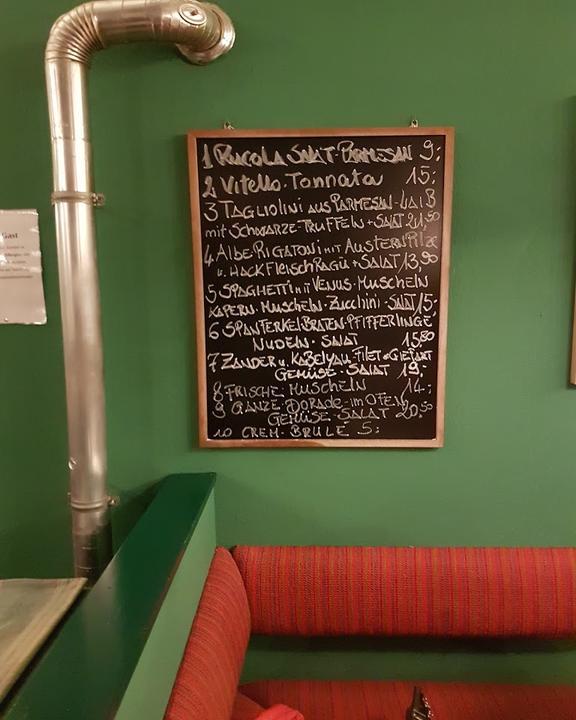 Gast
1 RUCOLA SALAT-PARMESAN 9:
2 Vitello-Tonnata 15:
3 TAGLIOLINI AUS PARMESAN-LAIB
mit SCHWARZE-TRUFFELN + SALAT 21,50
4 AlbE RIGATONI MIT AUSTERNPilze
u. HACKFLEISCHRAGÜ + SALAT 13,90
5 SPAGHETTI MIT VENUS-MUSCHELN
KAPERN-MUSCHELN-ZUCCHINI-SALAT 15:
6 SPANFERKELBRATEN-PFIFFERLINGE
NUDELN-SALAT 15,80
7 ZANDER u. KABELJAU-FILET
GEMÜSE-SALAT 19:
8 FRISCHE: MUSCHELN 14:
9 GANZE DORADE-im OFEN
GEMÜSE-SALAT 20,50
10 CREM-BRULE 5: